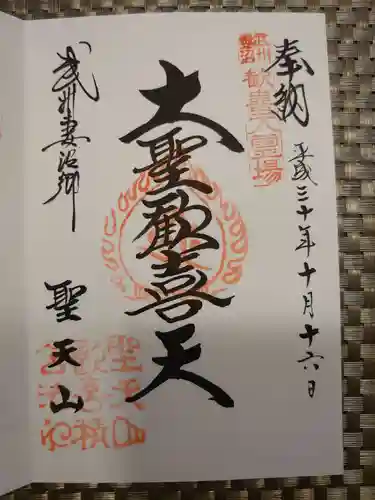 奉納
平成三十年十月十六日
武州妻沼
歓喜天霊場
大聖歓喜天
武州妻沼郷
聖天山